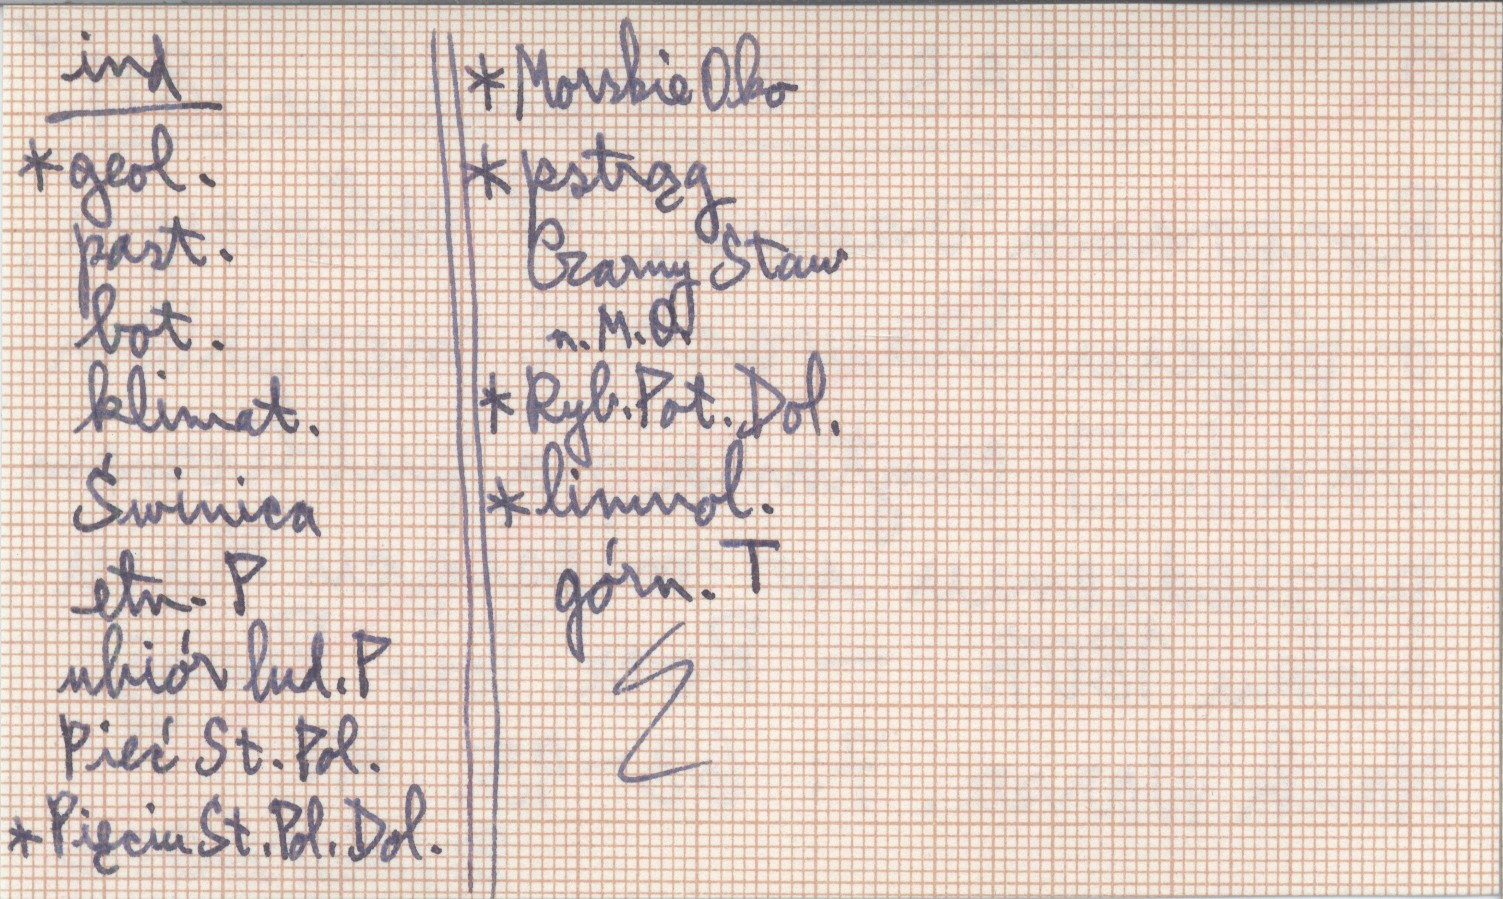 ind
*geol.
past.
bot.
klimat.
Świnica
etn. P
ubiór lud. P
Pięć St. Pol.
*Pięciu St. Pol. Dol.
*Morskie Oko
*pstrąg
Czarny Staw
n. M. O
*Ryb. Pot. Dol.
*limnol.
górn. T